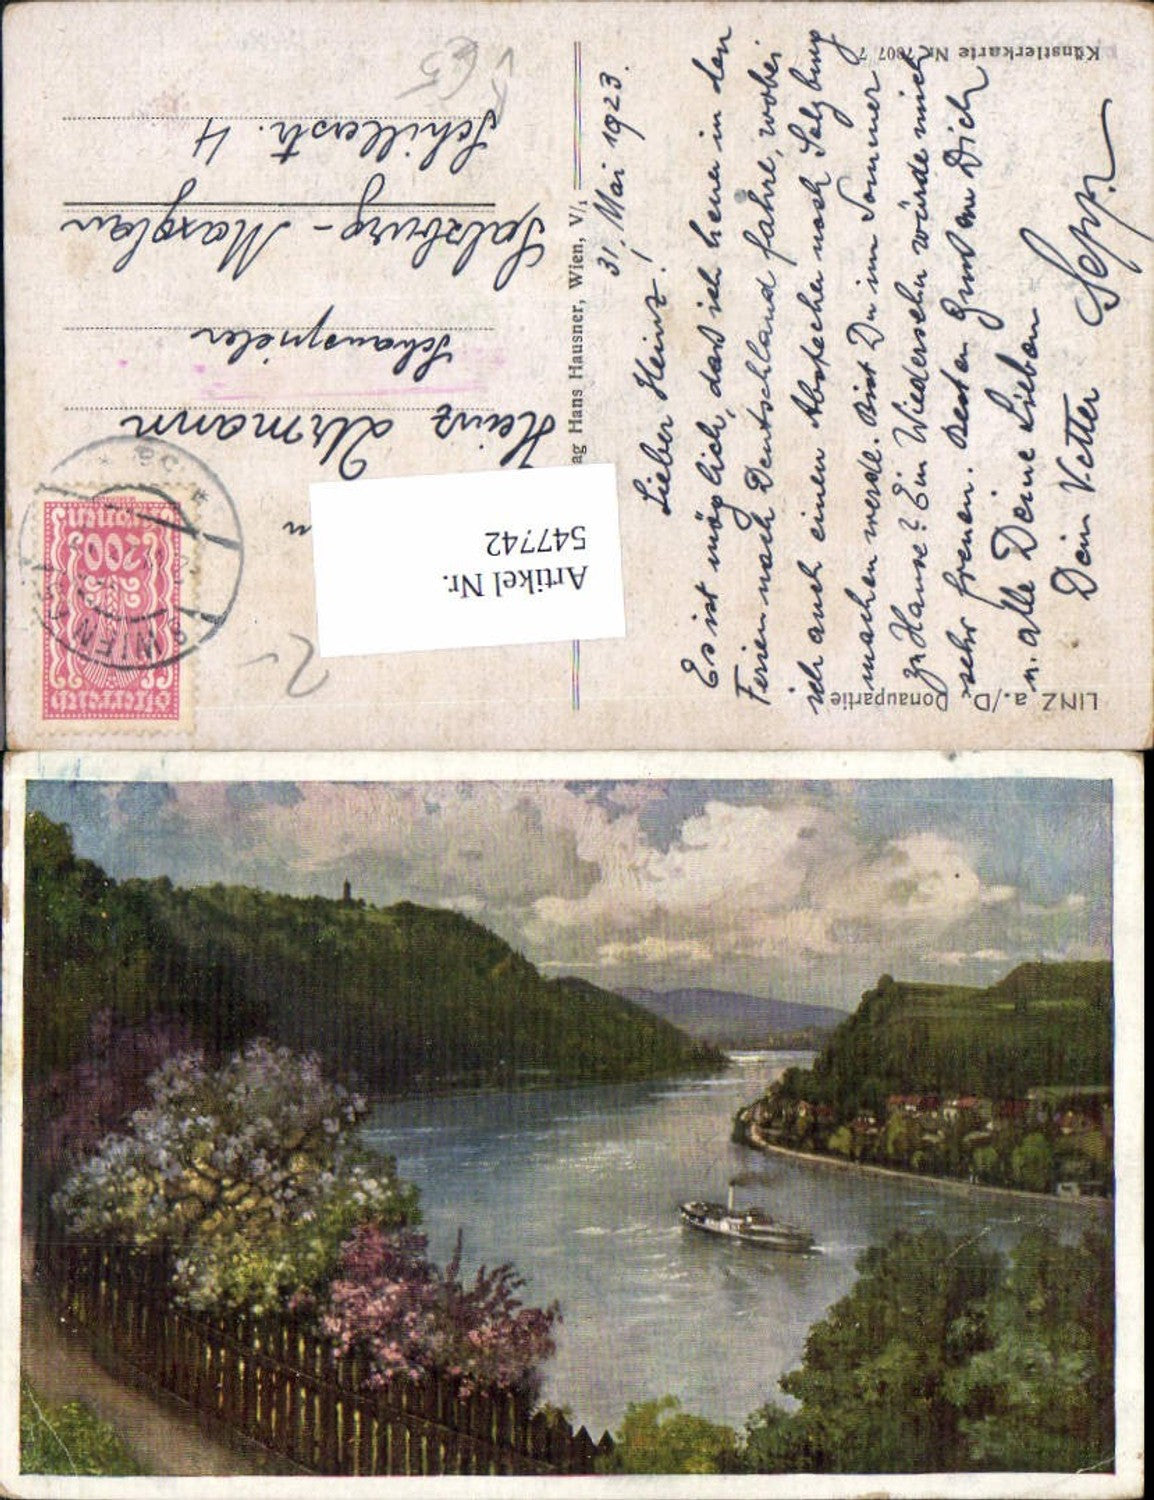 Künstlerkarte Nr. 7807 7
LINZ a./D. Donaupartie
Verlag Hans Hausner, Wien, V/1
31. Mai 1923.
Lieber Heinz!
Es ist möglich, daß ich heuer in den
Ferien nach Deutschland fahre, wobei
ich auch einen Abstecher nach Salzburg
machen werde. Bist Du im Sommer
zu Hause? Ein Wiedersehn würde mich
sehr freuen. Besten Gruß an Dich
u. alle Deine Lieben
Dein Vetter
Sepp.
Heinz
Schauspieler
Salzburg - Maxglan
Schillerstr. 4
Österreich
200
Kronen
WIEN
Artikel Nr.
547742